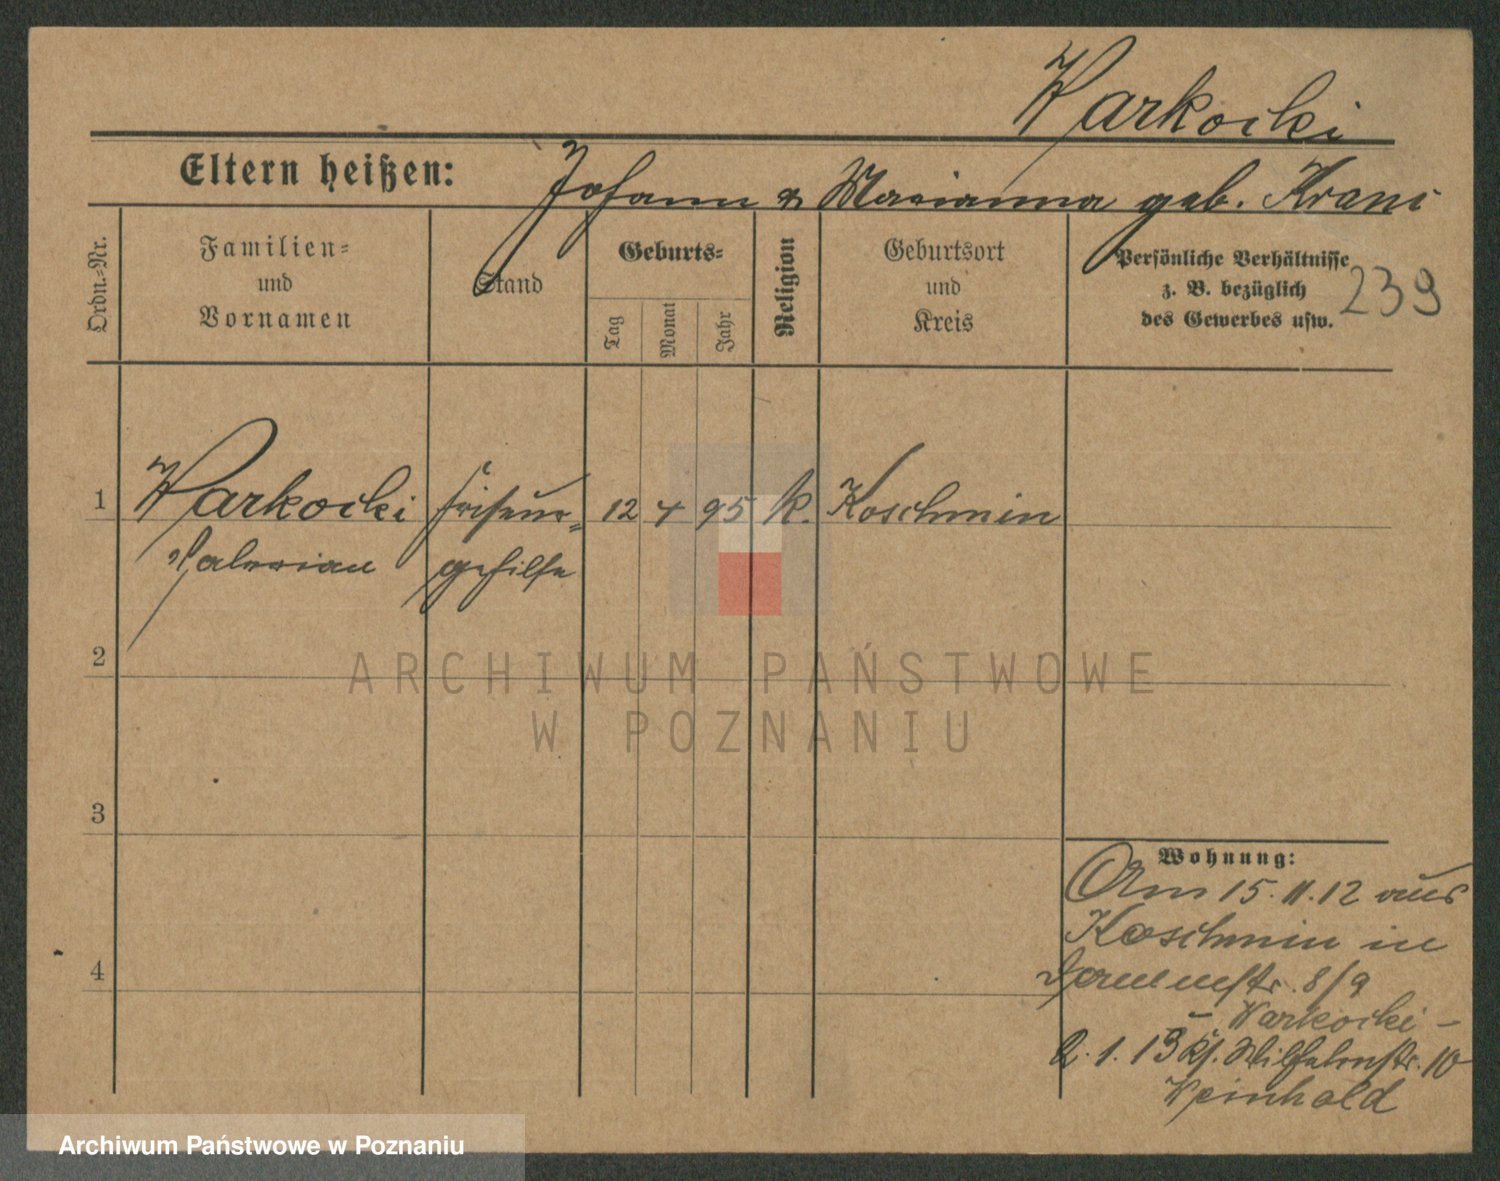 Warkocki
Eltern heißen: Johann & Marianna geb. Krani
Ordn.-Nr.
Familien-
und
Vornamen
Stand
Geburts-
Tag
Monat
Jahr
Religion
Geburtsort
und
Kreis
Persönliche Verhältnisse
z. B. bezüglich
des Gewerbes usw.
239
1 Warkocki Friseur- 12 4 95 k. Koschmin
Valerian gehilfe
2
3
4
Wohnung:
Am 15.11.12 aus
Koschmin in
8/9
- Warkocki -
2.1.13 Ks. Wilhelmstr. 10
Weinhold
ARCHIWUM PAŃSTWOWE
W POZNANIU
Archiwum Państwowe w Poznaniu